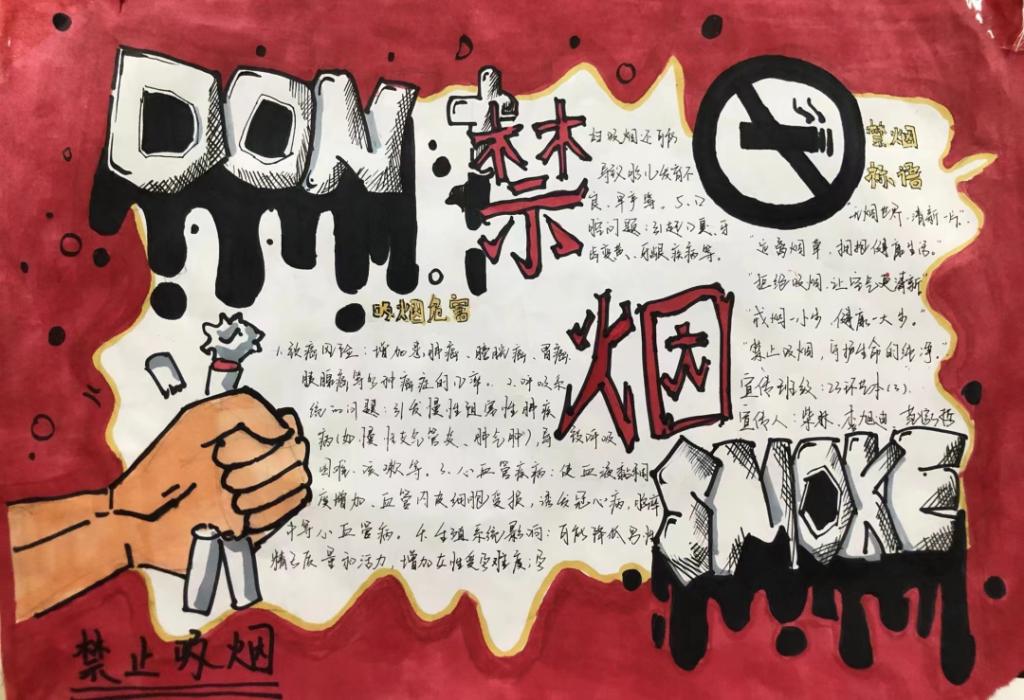 DON't
禁
烟
SMOKE
吸烟危害
1.致癌风险：增加患肺癌、膀胱癌、胃癌、
胰腺癌等多种癌症的几率。2.呼吸系
统的问题：引发慢性阻塞性肺疾
病(如慢性支气管炎、肺气肿)，导致呼吸
困难、咳嗽等。3.心血管疾病：使血液黏稠
度增加、血管内皮细胞受损，诱发冠心病，脑卒
中等心血管病。4.生殖系统影响：可能降低男性
精子质量和活力，增加女性受孕难度；孕
妇吸烟还可能
导致胎儿发育不
良、早产等。5.口
腔问题：引起口臭、牙
齿变黄、牙龈疾病等。
禁烟
标语
"无烟世界，清新一片"。
"远离烟草，拥抱健康生活。"
"拒绝吸烟，让空气更清新"
"戒烟一小步，健康一大步。"
"禁止吸烟，守护生命的纯净。"
宣传班级：23环艺本(3)
宣传人：柴林、
禁止吸烟